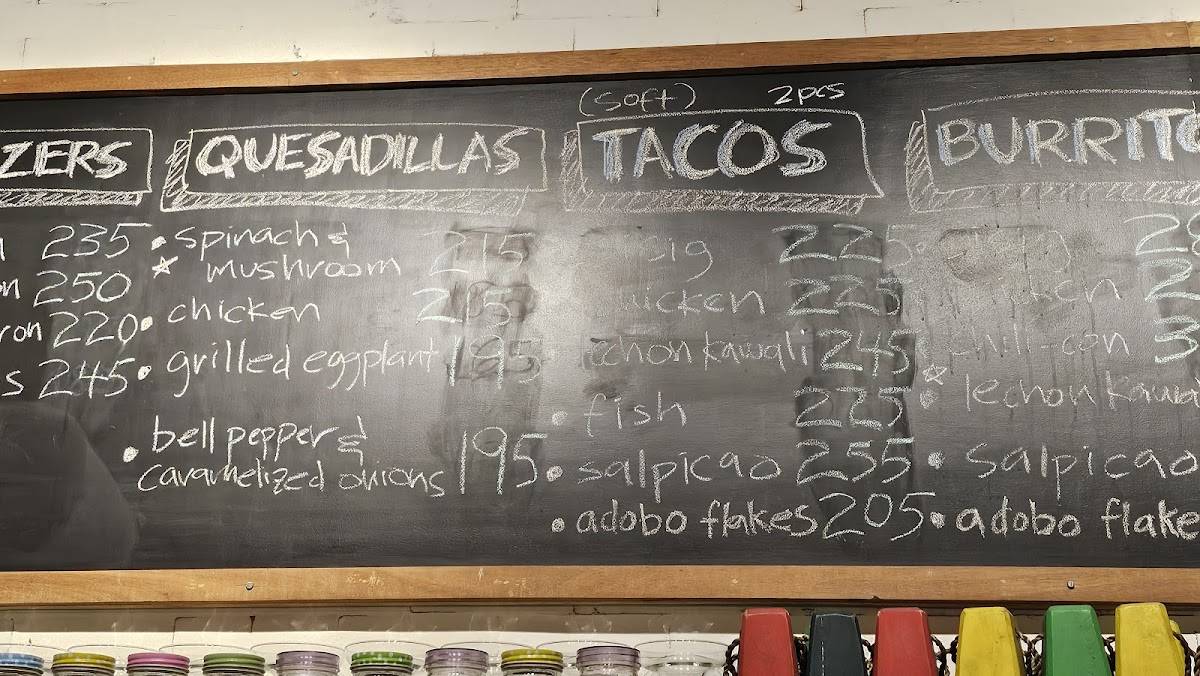 ZERS
235
250
220
245
QUESADILLAS
spinach &
mushroom 215
chicken 215
grilled eggplant 195
bell pepper &
caramelized onions 195
(soft) 2pcs
TACOS
225
chicken 225
lechon kawali 245
fish 225
salpicao 255
adobo flakes 205
BURRITO
chili-con
lechon kawal
salpicao
adobo flake